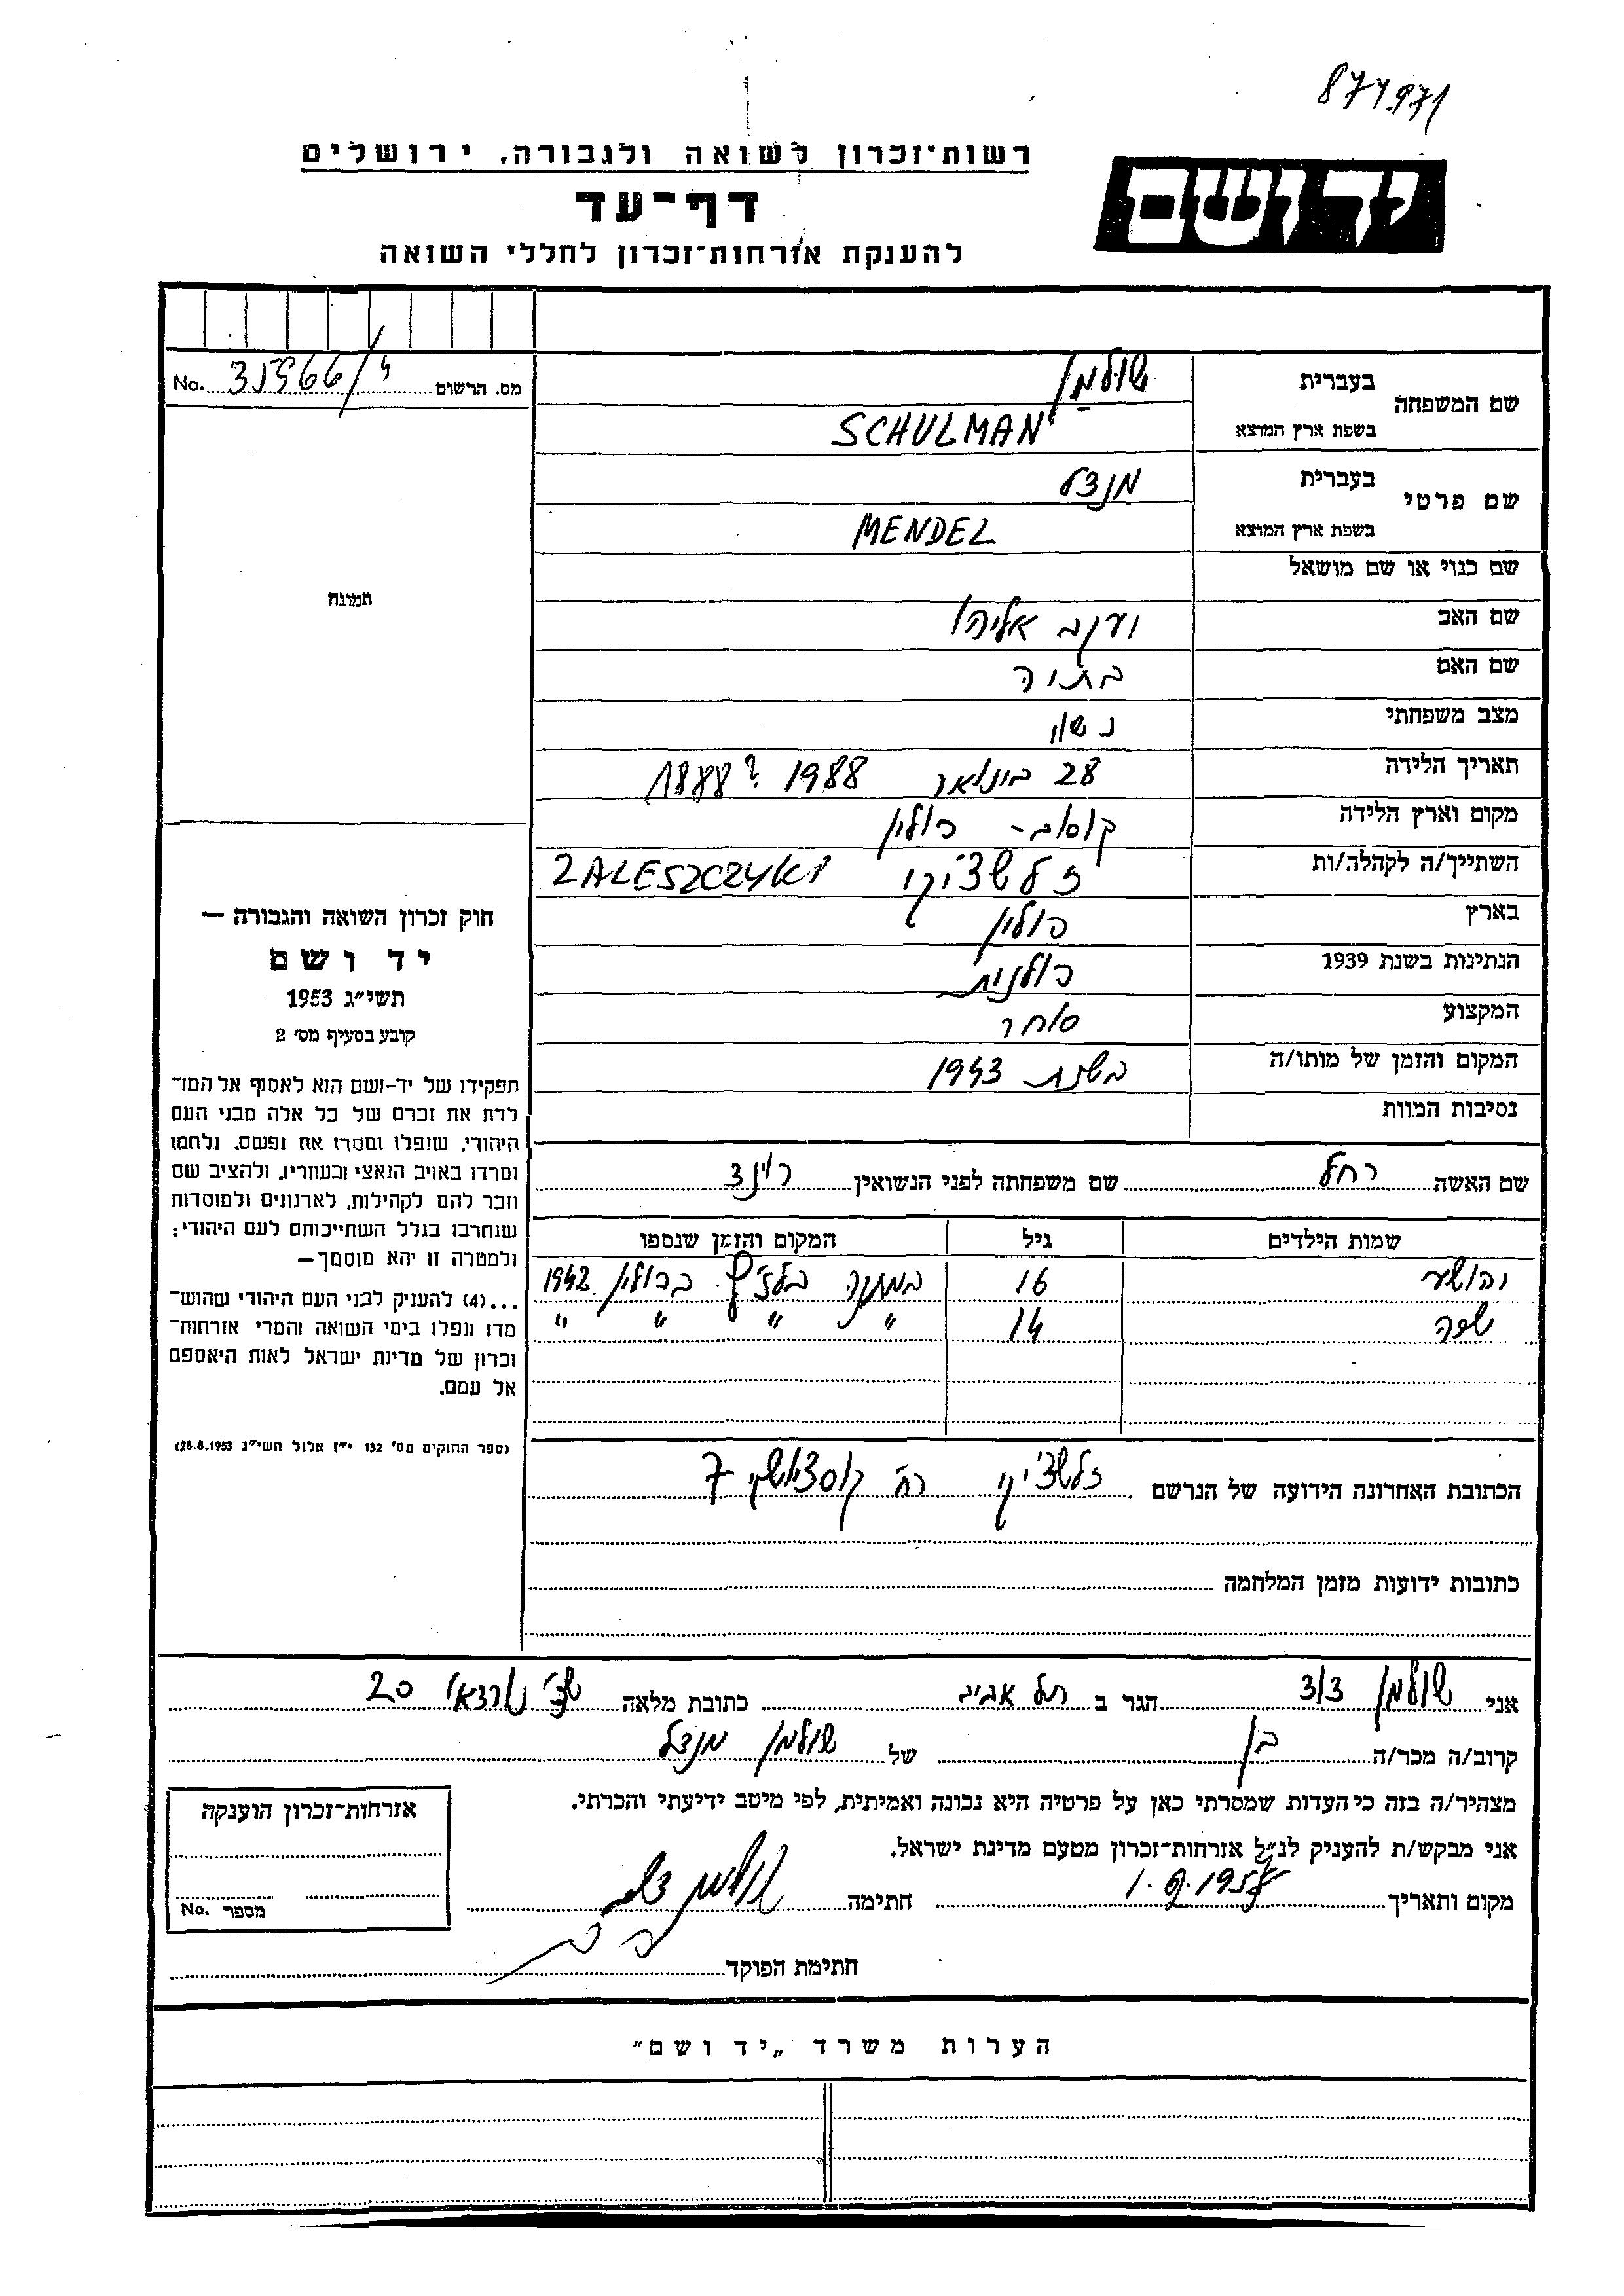 874971
יד ושם
רשות־זכרון לשואה ולגבורה, ירושלים
דף־עד
להענקת אזרחות־זכרון לחללי השואה
מס. הרשום No.
שם המשפחה
בעברית שולמן
בשפת ארץ המוצא SCHULMAN
שם פרטי
בעברית מנדל
בשפת ארץ המוצא MENDEL
שם כנוי או שם מושאל
שם האב יעקב אליהו
שם האם בתיה
מצב משפחתי נשוי
תאריך הלידה 28 בינואר 1988 ? 1888
מקום וארץ הלידה קוסוב - פולין
השתייך/ה לקהלה/ות זלשצ'יקי ZALESZCZYKI
בארץ פולין
הנתינות בשנת 1939 פולנית
המקצוע סוחר
המקום והזמן של מותו/ה בשנת 1943
נסיבות המוות
תמונה
חוק זכרון השואה והגבורה —
יד ושם
תשי״ג 1953
קובע בסעיף מס׳ 2
תפקידו של יד-ושם הוא לאסוף אל המו־
לדת את זכרם של כל אלה מבני העם
היהודי, שנפלו ומסרו את נפשם, נלחמו
ומרדו באויב הנאצי ובעוזריו, ולהציב שם
וזכר להם לקהילות, לארגונים ולמוסדות
שנחרבו בגלל השתייכותם לעם היהודי;
ולמטרה זו יהא מוסמך—
...(4) להעניק לבני העם היהודי שהוש־
מדו ונפלו בימי השואה והמרי אזרחות־
זכרון של מדינת ישראל לאות היאספם
אל עמם.
(ספר החוקים מס׳ 132 י״ז אלול תשי״ג 28.8.1953)
שם האשה רחל שם משפחתה לפני הנשואין
שמות הילדים גיל המקום והזמן שנספו
יהושע 16 במחנה בלז'ץ בפולין 1942
14 " " " "
הכתובת האחרונה הידועה של הנרשם זלשצ'יקי רח' 7
כתובות ידועות מזמן המלחמה
אני שולמן הגר ב תל אביב כתובת מלאה 20
קרוב/ה מכר/ה בן של שולמן מנדל
מצהיר/ה בזה כי העדות שמסרתי כאן על פרטיה היא נכונה ואמיתית, לפי מיטב ידיעתי והכרתי.
אני מבקש/ת להעניק לנ״ל אזרחות־זכרון מטעם מדינת ישראל.
מקום ותאריך חתימה שולמן
חתימת הפוקד
אזרחות־זכרון הוענקה
מספר No.
הערות משרד „יד ושם״